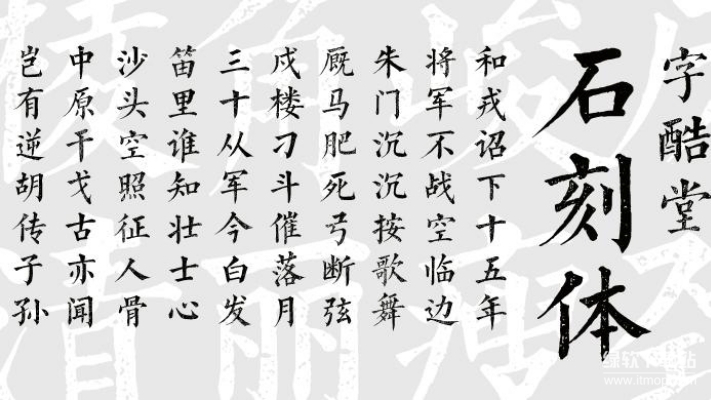 字酷堂
石刻体
和戎诏下十五年
将军不战空临边
朱门沉沉按歌舞
厩马肥死弓断弦
戍楼刁斗催落月
三十从军今白发
笛里谁知壮士心
沙头空照征人骨
中原干戈古亦闻
岂有逆胡传子孙